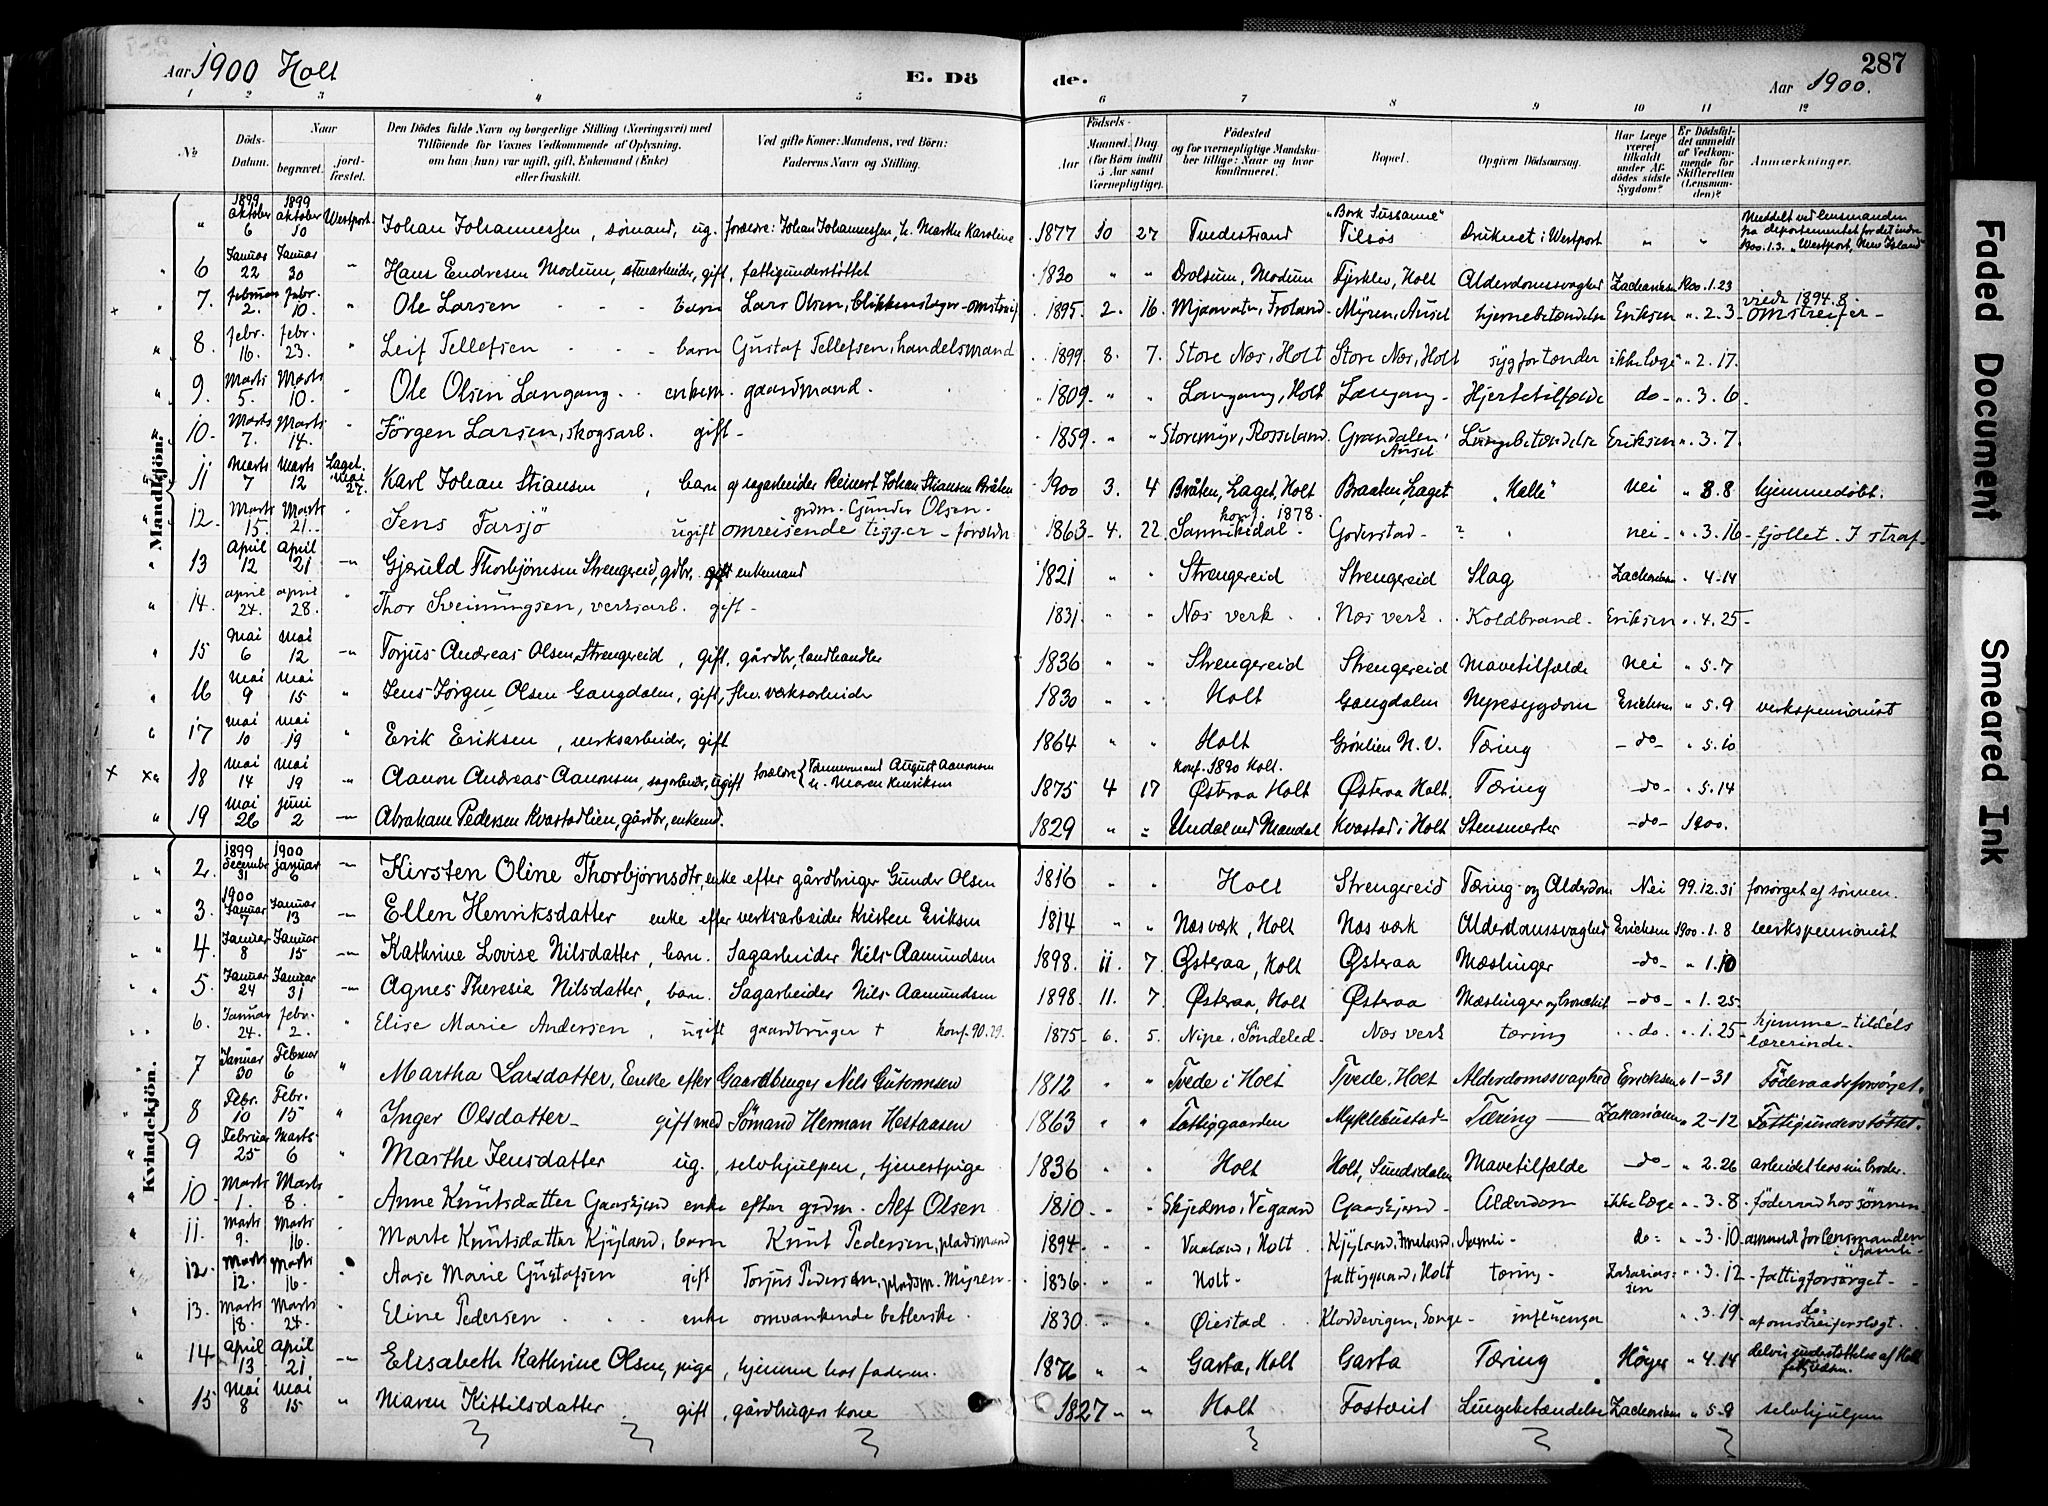 Aar 1900 Holt
E. Dö
de.
287
Aar 1900.
1 2 3 4 5 6 7 8 9 10 11 12
No
Döds-Datum.
Naar
begravet.
jord-fæstet.
Den Dödes fulde Navn og borgerlige Stilling (Næringsvei) med Tilføiende for Voxnes Vedkommende af Oplysning, om han (hun) var ugift, gift, Enkemand (Enke) eller fraskilt.
Ved gifte Koner: Mandens, ved Börn: Faderens Navn og Stilling.
Födsels-
Aar
Maaned. Dag.
(for Börn indtil 5 Aar samt Værnepligtige).
Födested og for værnepligtige Mandskaber tillige: Naar og hvor konfirmeret.
Bopæl.
Opgiven Dödsaarsag.
Har Læge været tilkaldt under Afdödes sidste Sygdom?
Er Dödsfaldet anmeldt af Vedkommende for Skifteretten (Lensmanden)?
Anmærkninger.
Mandkjön.
" 1899 Oktober 6 1899 Oktober 10 Westport Johan Johannessen, sømand, ug. forældre: Johan Johannessen, h. Marthe Karoline 1877 10 27 Tvedestrand "Bark Sussanne" Tilsøs Druknet i Westport " " Meddelt ved lensmanden fra departementet for det indre 1900.1.3. "Westport, New Island"
6 Januar 22 Januar 30 " Hans Endresen Modum, gift, fattigunderstøttet 1830 " " Drolsum, Modum Fjerklev, Holt Alderdomssvaghed Zachariasen 1900.1.23
7. februar 2. febr. 10. " Ole Larsen - - barn Lars Olsen, blikkenslager - omstreif 1895. 2. 16. Mjaavatn, Froland - Myren, Ausel hjernebetændelse Eriksen ". 2. 3 - viede 1894.8. omstreifer -
8. febr. 16. febr. 23. " Leif Tellefsen - - barn Gustaf Tellefsen, handelsmand 1899. 8. 7. Store Næs, Holt Store Næs, Holt syg for tænder ikke læge ". 2. 17.
9. Marts 5. Marts 10. " Ole Olsen Langang - enkem. gaardmand. 1809. " " Langang, Holt Langang - Hjertetilfælde do - ". 3. 6
10. Marts 7. Marts 14. " Jörgen Larsen, skogsarb. gift - 1859. " " Storemyr, Rosseland. Grandalen, Ausel Lungebetændelse Eriksen ". 3. 7.
11 Marts 7 Marts 12 Laget. Mai 27. Karl Johan Stiansen, barn af sagarbeider Reinert Johan Stiansen Bråten 1900 3. 4 Bråten, Laget, Holt Braaten, Laget "Helle" Nei " 8.8 hjemmedøbt.
12. Marts 15. Marts 21. " Jens Farsjö ugift omreisende tigger - forældre grdm. Gunder Olsen - 1863 - 4. 22. konf. 1878. Sannikedal - Goderstad - ? nei - ". 3. 16 - fjollet. I straf -
13 April 12 April 21 - Gjeruld Thorbjørnsen Strengereid, gdbr. gift enkemand 1821 " " Strengereid Strengereid Slag Zachariasen " 4.14
14. april 24. april 28. " Thor Sveinungsen, verksarb. gift - 1831. " " Næs verk . Næs verk . Koldbrand - Eriksen ". 4. 25 -
15 Mai 6 Mai 12 - Torjus Andreas Olsen Strengereid, gift, gårdbr, landhandler 1836 " " Strengereid Strengereid Mavetilfælde Nei " 5.7
16 Mai 9 Mai 15 " Jens Jörgen Olsen Gangdalen, gift, fhv. verksarbeider 1830 " " Holt Gangdalen Nyresygdom Ericksen " 5.9 verkspensionist
17 Mai 10 Mai 19 " Erik Eriksen, verksarbeider, gift 1864 " " Holt Grønlien N.V. Tæring - do - " 5.10
18 Mai 14 Mai 19 " Aanon Andreas Aanonsen, sagarbeider, ugift forældre { Tømmermand August Aanonsen h. Maren Henriksen 1875 4 17 konf. 1890 Holt. Østeraa Holt Østeraa Holt. Tæring - do - " 5.14
19 Mai 26 Juni 2 - Abraham Pedersen Kvastadlien, gårdbr, enkemd. 1829 " " Undal ved Mandal Kvastad i Holt Stensmerter - do - 1900.
Kvindekjön.
2. 1899 December 31 1900 Januar 6 - Kirsten Oline Thorbjørnsdtr, enke efter gårdbruger Gunder Olsen 1816 " " Holt Strengereid Tæring og Alderdom Nei 99.12.31 forsørget af sønnen.
3. 1900 Januar 7 Januar 13 - Ellen Henriksdatter enke efter verksarbeider Kristen Eriksen 1814 " " Næsværk, Holt Næs værk Alderdomssvaghed Ericksen 1900.1.8 verkspensionist
4. Januar 8 Januar 15 - Kathrine Lovise Nilsdatter, barn. Sagarbeider Nils Aamundsen 1898. 11. 7. Østeraa, Holt Østeraa Mæslinger - do - " 1.10
5. Januar 24 Januar 31 - Agnes Theresie Nilsdatter, barn. Sagarbeider Nils Aamundsen 1898. 11. 7. Østeraa, Holt Østeraa Mæslinger og bronchit - do - " 1.25
6. Januar 24. febr. 2. " Elise Marie Andersen, ugift gaardbruger + konf. 90.29. 1875 - 6. 5. Nipe, Söndeled - Næs verk tæring . do. ". 1.25 - hjemme - tildels lærerinde -
7 Januar 30 Februar 6 " Martha Larsdatter, Enke efter Gaardbruger Nils Gutormsen 1812 " " Tvede i Holt Tvede, Holt Alderdomssvaghed Ericksen " 1-31 Föderaadsforsörget.
8 Febr. 10 Febr. 15 " Inger Olsdatter - gift med Sömand Herman Hestaasen 1863 " " Fattiggaarden Myklebustad - Tæring - Zakariasen " 2-12 Fattigunderstöttet.
9 Februar 25 Marts 6 " Marthe Jensdatter ug., selvhjulpen, tjenestpige 1836 " " Holt Holt, Sundsdalen Mavetilfælde - do - " 2.26 arbeidet hos sin broder.
10 - Marts 1. Marts 8. " Anne Knütsdatter Gaaskjend enke efter grdm. Alf Olsen 1810 " " Skjedmo, Vegaard Gaaskjend - Alderdom ikke læge ". 3. 8. föderaad hos sönnen -
11. Marts 9. Marts 16. " Marte Knütsdatter Kjyland, barn Knut Pedersen, pladsmand 1894 - Vaaland, Holt . Kjyland, Aamli - do - ". 3.10. anmeldt for lensmanden i Aamli -
12. Marts 12. Marts 16. Aase Marie Gustafsen gift Torjus Pedersen, pladsm. Myren - 1836. " " Holt - fattiggaard, Holt tæring - Zakariassen ". 3.12 - fattigforsörget -
13. Marts 18. Marts 24. " Eline Pedersen enke omvankende betlerske. 1830. " " Øiestad. Kloddevigen, Songe - influensa ". 3.19. do - af omstreiferslegt.
14 April 13 April 21 - Elisabeth Kathrine Olsen, pige, hjemme hos faderen. 1876 " " Garta, Holt Garta Tæring Höyer " 4.14 delvis understøttelse af Holt
15 Mai 8 Mai 15 " Maren Kittilsdatter gift, gårdbrugers kone 1827 " " Holt Fostveit Lungebetændelse Zachariasen " 5.9 selvhjulpen
Faded Document
Smeared Ink